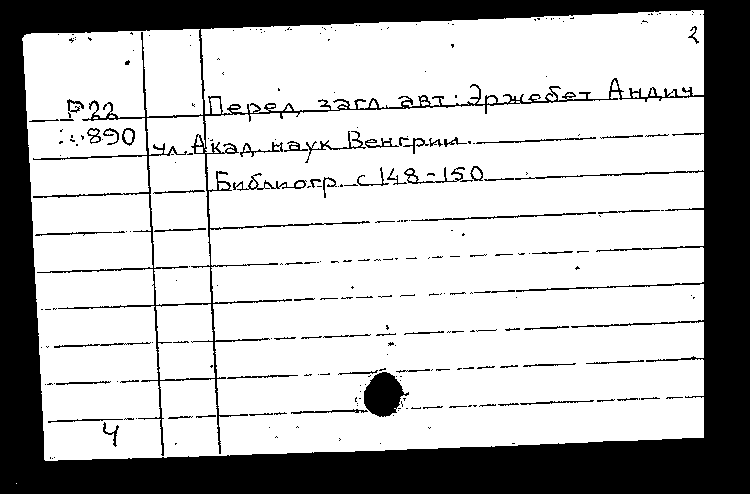 2
Р22 Перед загл. авт.: Эржебет Андич
890 чл. Акад. наук Венгрии.
Библиогр. с 148-150
4